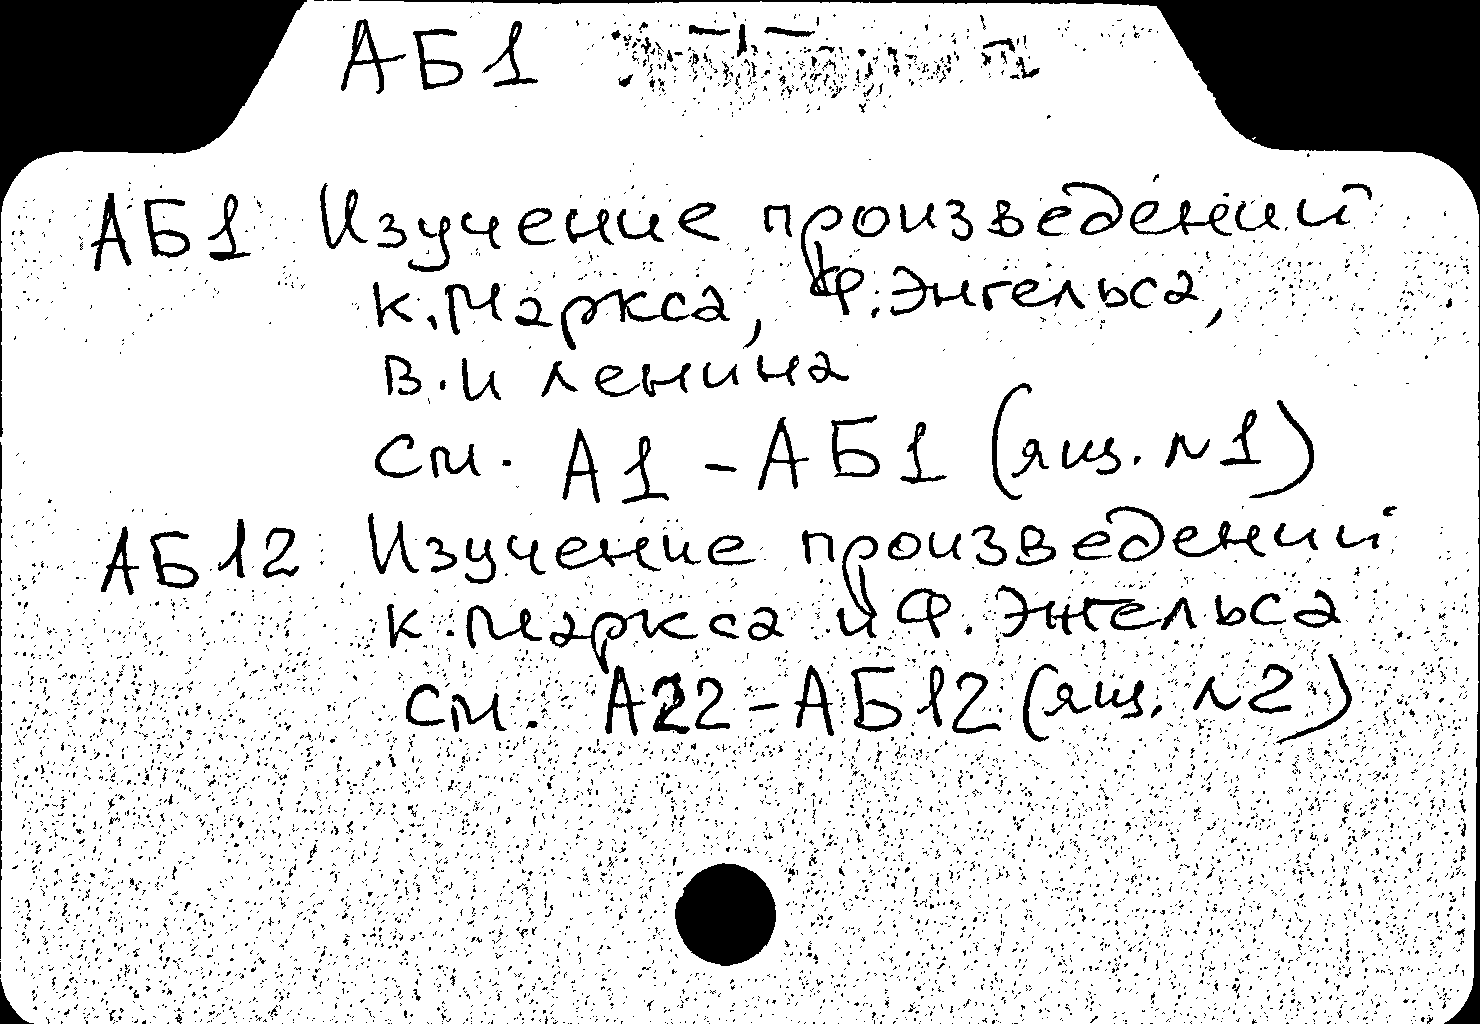 АБ1
АБ1 Изучение произведений
К. Маркса, Ф. Энгельса,
В.И Ленина
См. А1 - АБ1 (ящ. №1)
АБ12 Изучение произведений
К. Маркса и Ф. Энгельса
См. А22 - АБ12 (ящ. №2)